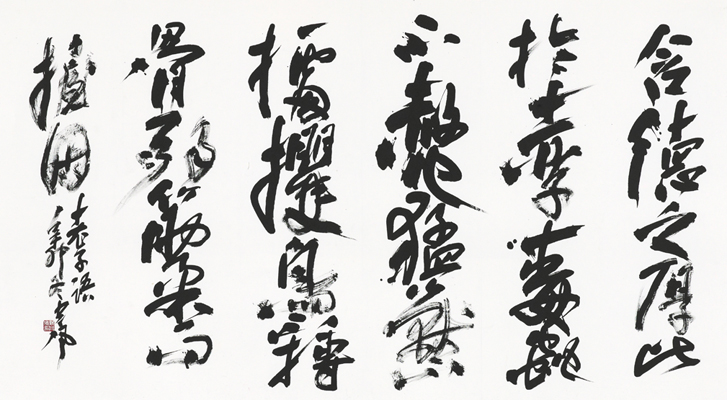 含德之厚比
於赤子毒蟲
不螫猛獸
據攫鳥搏
骨弱筋柔而
握固
老子語
辛卯冬